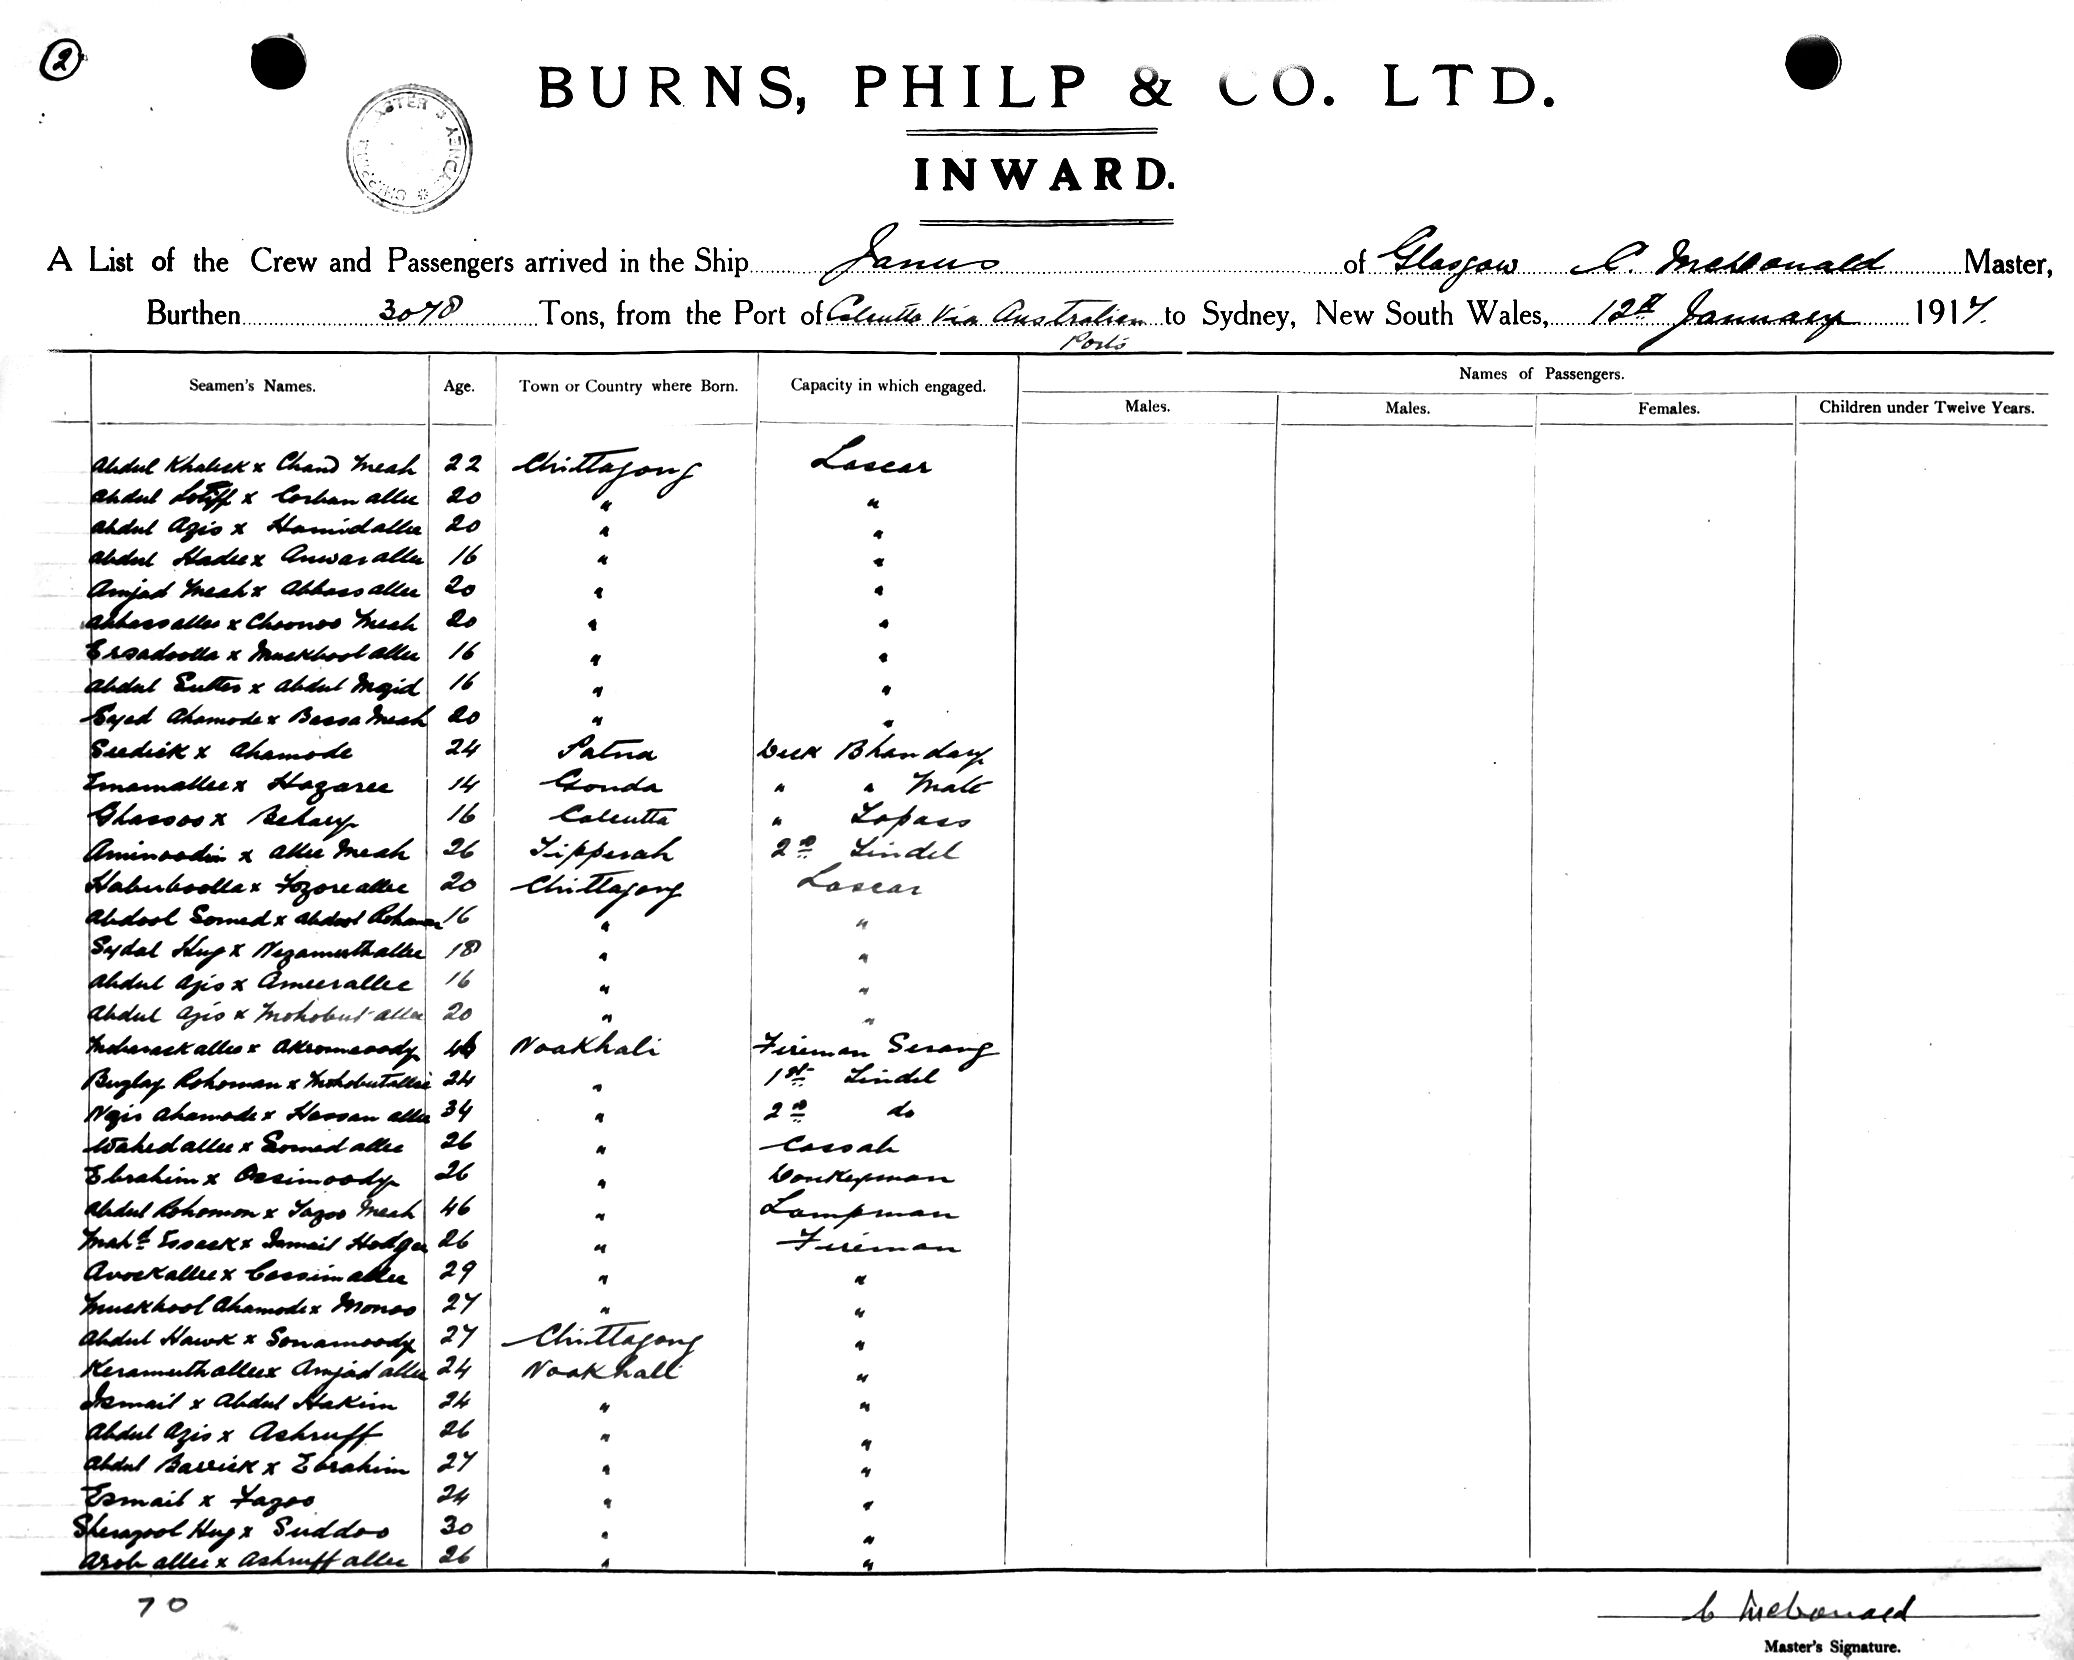 2
BURNS, PHILP & CO. LTD.
INWARD.
A List of the Crew and Passengers arrived in the Ship Janus of Glasgow C. McDonald Master,
Burthen 3078 Tons, from the Port of Calcutta Via Australian Ports to Sydney, New South Wales, 12th January 1917.
Seamen's Names. Age. Town or Country where Born. Capacity in which engaged. Names of Passengers.
Males. Males. Females. Children under Twelve Years.
Abdul Khalick x Chand Meah 22 Chittagong Lascar
Abdul Lotiff x Corban allee 20 " "
Abdul Azis x Hamid allee 20 " "
Abdul Hadee x Anwar allee 16 " "
Amjad Meah x Abbass allee 20 " "
Abbass allee x Choonoo Meah 20 " "
Ersadoolla x Muckbool allee 16 " "
Abdul Sutter x Abdul Mazid 16 " "
Syed Ahamode x Bassa Meah 20 " "
Seedick x Ahamode 24 Patna Deck Bhandary
Emamallee x Hazaree 14 Gonda " " Mate
Ghassoo x Behary 16 Calcutta " Topass
Aminoodin x Allee Meah 26 Tipperah 2nd Tindel
Habiboolla x Fozore allee 20 Chittagong Lascar
Abdool Somed x Abdool Rohaman 16 " "
Sydal Huq x Nezamuth allee 18 " "
Abdul Azis x Ameer allee 16 " "
Abdul Azis x Mohobut allee 20 " "
Mobarack allee x Akromooddy 46 Noakhali Fireman Serang
Buzlay Rohoman x Mohobut allee 24 " 1st Tindel
Nazir Ahamode x Hassan allee 34 " 2nd do
Wahed allee x Somed allee 26 " Cassab
Ebrahim x Ossimoody 26 " Donkeyman
Abdul Rohomon x Fazoo Meah 46 " Lampman
Mahd Essack x Ismail Hodger 26 " Fireman
Avock allee x Cassim allee 29 " "
Muckbool Ahamode x Monoo 27 " "
Abdul Hawk x Sonamoody 27 Chittagong "
Keramuth allee x Amjad allee 24 Noakhali "
Ismail x Abdul Hakim 24 " "
Abdul Azis x Ashruff 26 " "
Abdul Barrick x Ebrahim 27 " "
Esmail x Fazoo 24 " "
Sherazool Huq x Suddoo 30 " "
Arob allee x Ashruff allee 26 " "
70
C McDonald
Master's Signature.